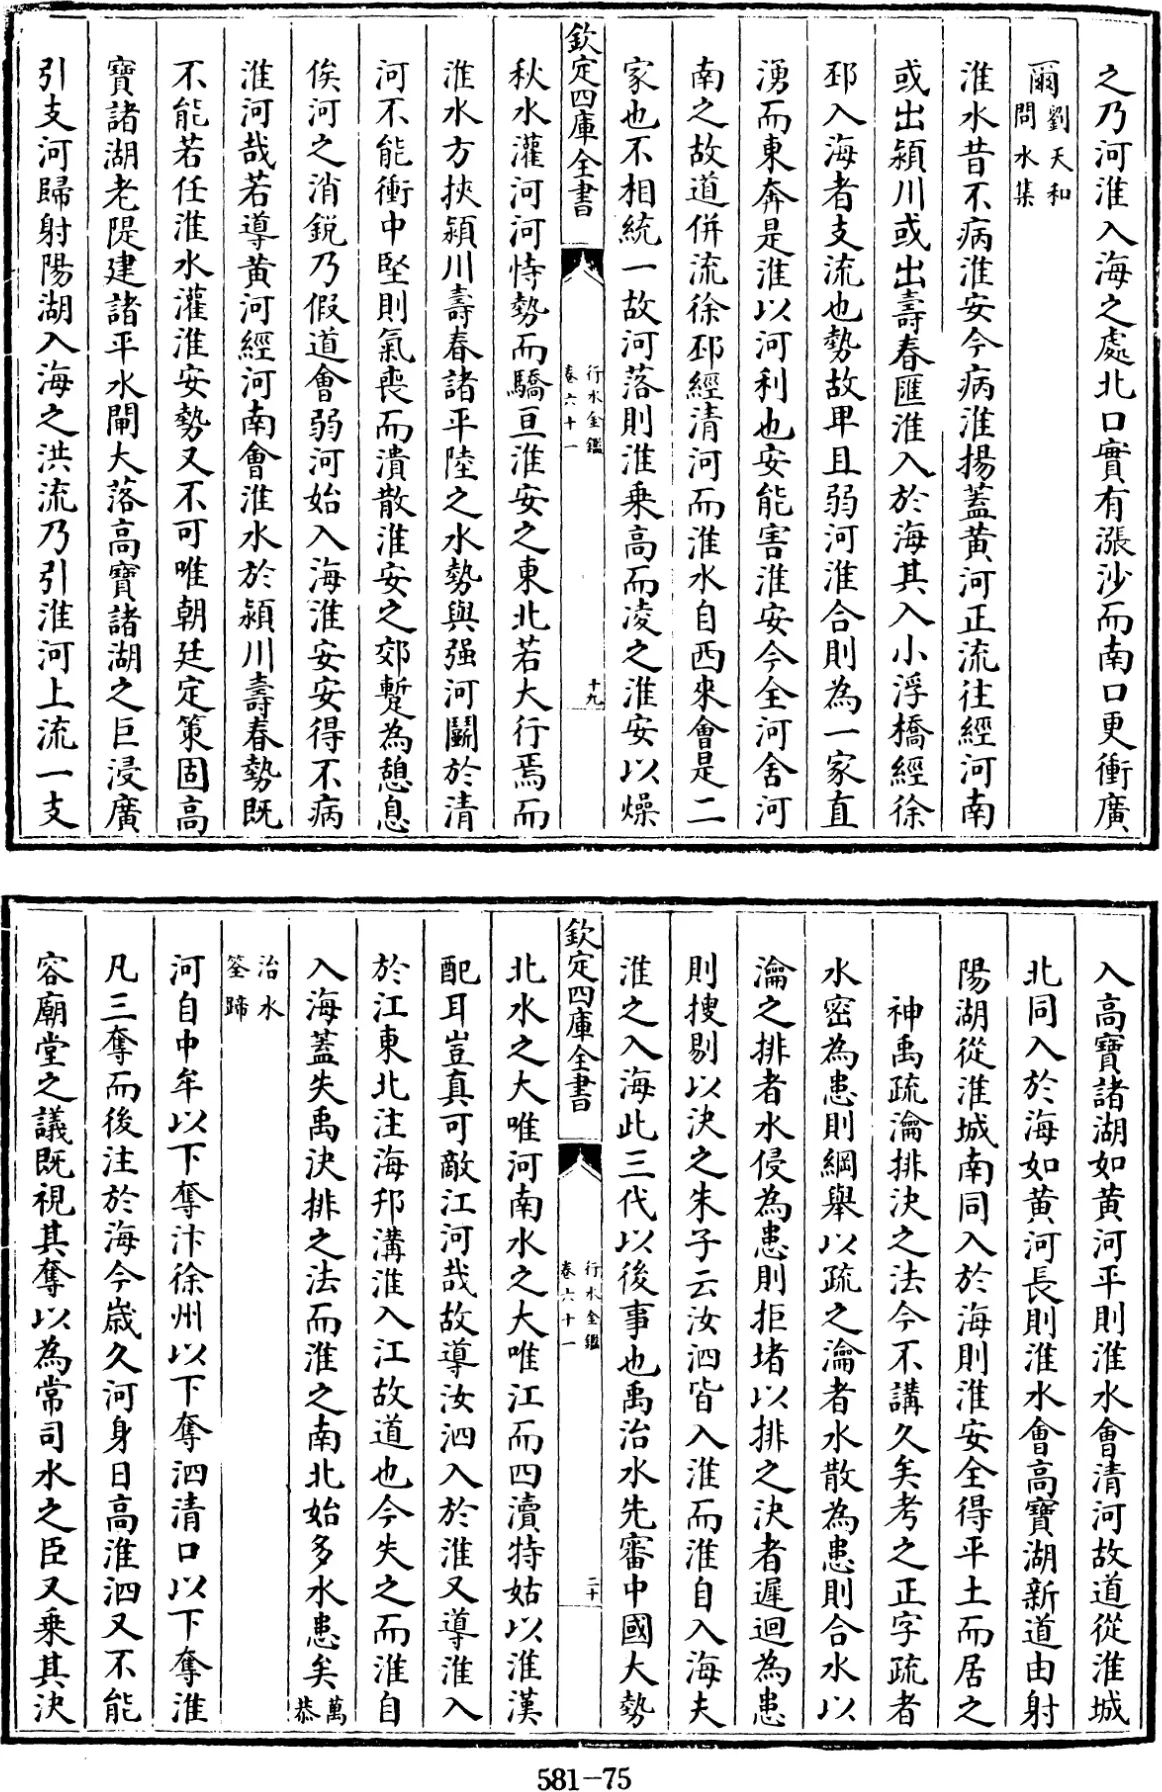 之乃河淮入海之處北口實有漲沙而南口更衝廣
爾劉天和問水集
淮水昔不病淮安今病淮揚蓋黄河正流往經河南
或出潁川或出壽春匯淮入於海其入小浮橋經徐
邳入海者支流也勢故卑且弱河淮合則為一家直
湧而東奔是淮以河利也安能害淮安今全河舍河
南之故道併流徐邳經清河而淮水自西來會是二
家也不相統一故河落則淮乘高而凌之淮安以燥
欽定四庫全書
行水金鑑
卷六十一
十九
秋水灌河河恃勢而驕亘淮安之東北若大行焉而
淮水方挾潁川壽春諸平陸之水勢與强河鬭於清
河不能衝中堅則氣喪而潰散淮安之郊蹔為憩息
俟河之消鋭乃假道會弱河始入海淮安安得不病
淮河哉若導黄河經河南會淮水於潁川壽春勢既
不能若任淮水灌淮安勢又不可唯朝廷定策固高
寶諸湖老隄建諸平水閘大落高寶諸湖之巨浸廣
引支河歸射陽湖入海之洪流乃引淮河上流一支
入高寶諸湖如黄河平則淮水會清河故道從淮城
北同入於海如黄河長則淮水會高寶湖新道由射
陽湖從淮城南同入於海則淮安全得平土而居之
神禹疏瀹排決之法今不講久矣考之正字疏者
水密為患則綱舉以疏之瀹者水散為患則合水以
瀹之排者水侵為患則拒堵以排之決者遲迴為患
則搜剔以決之朱子云汝泗皆入淮而淮自入海夫
淮之入海此三代以後事也禹治水先審中國大勢
欽定四庫全書
行水金鑑
卷六十一
二十
北水之大唯河南水之大唯江而四瀆特姑以淮漢
配耳豈真可敵江河哉故導汝泗入於淮又導淮入
於江東北注海邗溝淮入江故道也今失之而淮自
入海蓋失禹決排之法而淮之南北始多水患矣萬恭
治水筌蹄
河自中牟以下奪汴徐州以下奪泗清口以下奪淮
凡三奪而後注於海今歳久河身日高淮泗又不能
容廟堂之議既視其奪以為常司水之臣又乗其決
581-75